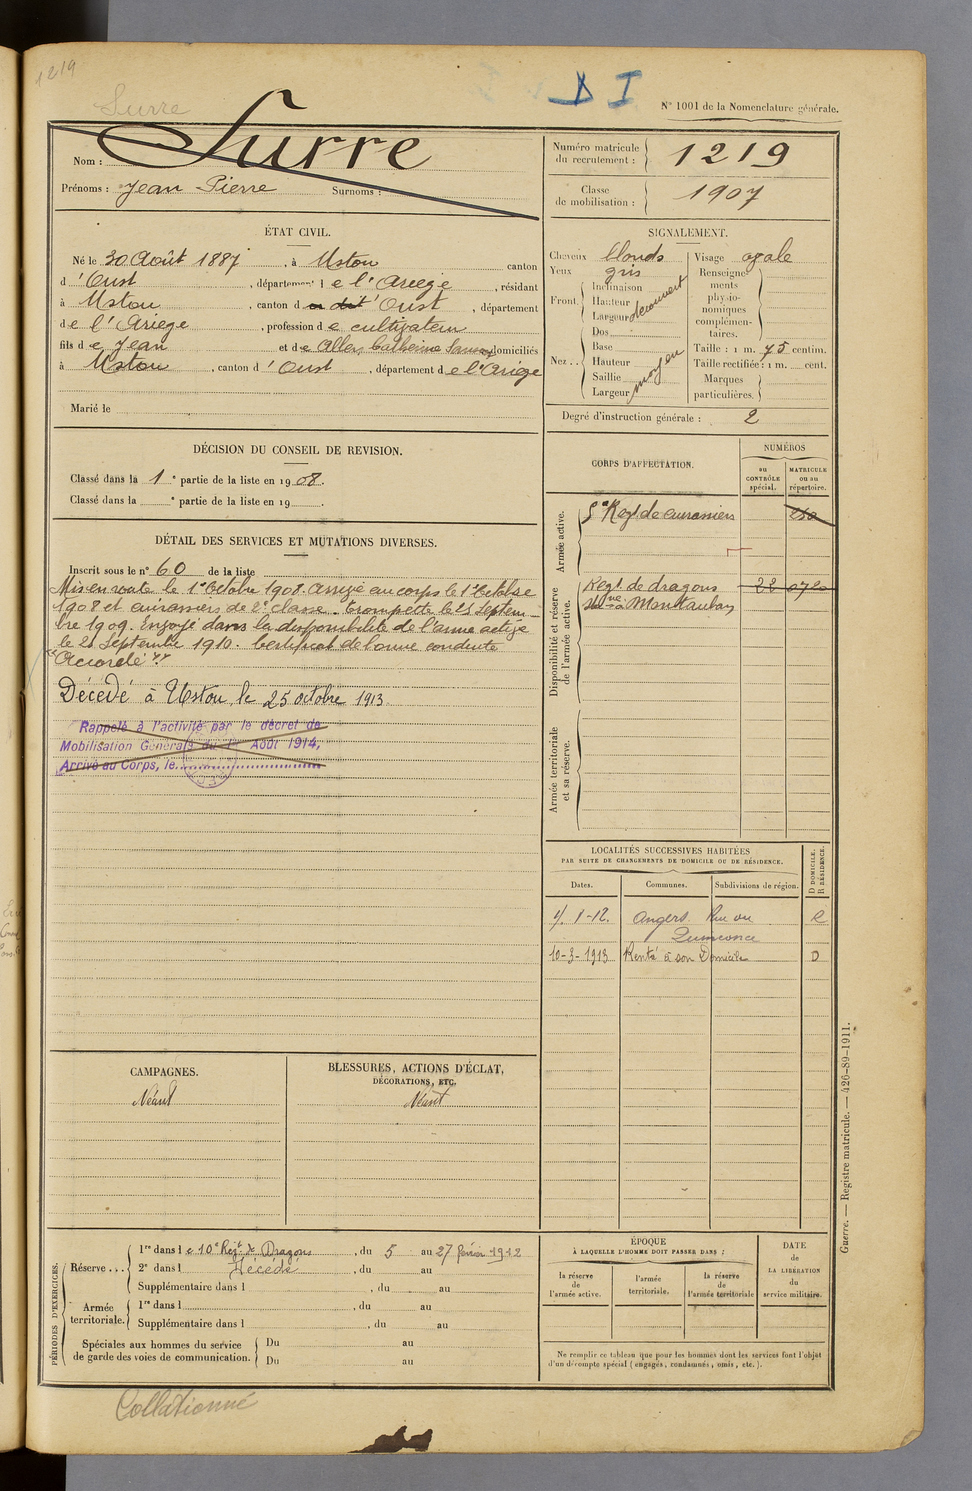 1219
Surre
D I
N° 1001 de la Nomenclature générale.
Nom : Surre
Prénoms : Jean Pierre Surnoms :
Numéro matricule du recrutement : 1219
Classe de mobilisation : 1907
ÉTAT CIVIL.
Né le 30 Août 1887, à Ustou canton
d'Oust, département de l'Ariège, résidant
à Ustou, canton d ou dit 'Oust, département
de l'Ariège, profession de cultivateur
fils de Jean et de Catherine domiciliés
à Ustou, canton d'Oust, département de l'Ariège
Marié le
SIGNALEMENT.
Cheveux blonds
Yeux gris
Front : Inclinaison
Hauteur
Largeur découvert
Nez : Dos
Base
Hauteur
Saillie
Largeur moyen
Visage ovale
Renseignements physionomiques complémentaires.
Taille : 1 m. 75 centim.
Taille rectifiée : 1 m. cent.
Marques particulières.
Degré d'instruction générale : 2
DÉCISION DU CONSEIL DE REVISION.
Classé dans la 1e partie de la liste en 1908.
Classé dans la e partie de la liste en 19 .
DÉTAIL DES SERVICES ET MUTATIONS DIVERSES.
Inscrit sous le n° 60 de la liste
Mis en route le 1er Octobre 1908. Arrivé au corps le 1er Octobre
1908 et cuirassiers de 2e classe. Trompette le 25 Septem-
bre 1909. Envoyé dans la disponibilité de l'armée active
le 25 Septembre 1910. Certificat de bonne conduite
"Accordé".
Décédé à Ustou, le 25 octobre 1913.
Rappelé à l'activité par le décret de
Mobilisation Générale du 1er Août 1914,
Arrivé au Corps, le
CORPS D'AFFECTATION.
NUMÉROS
au CONTRÔLE spécial.
MATRICULE ou au répertoire.
Armée active.
Regt de cuirassiers
Disponibilité et réserve de l'armée active.
Regt de dragons 22
Montauban
Armée territoriale et sa réserve.
LOCALITÉS SUCCESSIVES HABITÉES
PAR SUITE DE CHANGEMENTS DE DOMICILE OU DE RÉSIDENCE.
D DOMICILE. R RÉSIDENCE.
Dates. Communes. Subdivisions de région.
1-12. Angers. Rue du R
10-3-1913 Rentré à son Domicile D
CAMPAGNES.
Néant
BLESSURES, ACTIONS D'ÉCLAT,
DÉCORATIONS, ETC.
Néant
PÉRIODES D'EXERCICES.
Réserve... 1re dans l e 10e Régt de Dragons, du 5 au 27 février 1912
2e dans l Décédé, du au
Supplémentaire dans l , du au
Armée territoriale. 1re dans l , du au
Supplémentaire dans l , du au
Spéciales aux hommes du service de garde des voies de communication. Du au
Du au
ÉPOQUE
À LAQUELLE L'HOMME DOIT PASSER DANS :
la réserve de l'armée active.
l'armée territoriale.
la réserve de l'armée territoriale
DATE de LA LIBÉRATION du service militaire.
Ne remplir ce tableau que pour les hommes dont les services font l'objet
d'un décompte spécial (engagés, condamnés, omis, etc.).
Guerre. — Registre matricule. — 426-89-1911.
Collationné